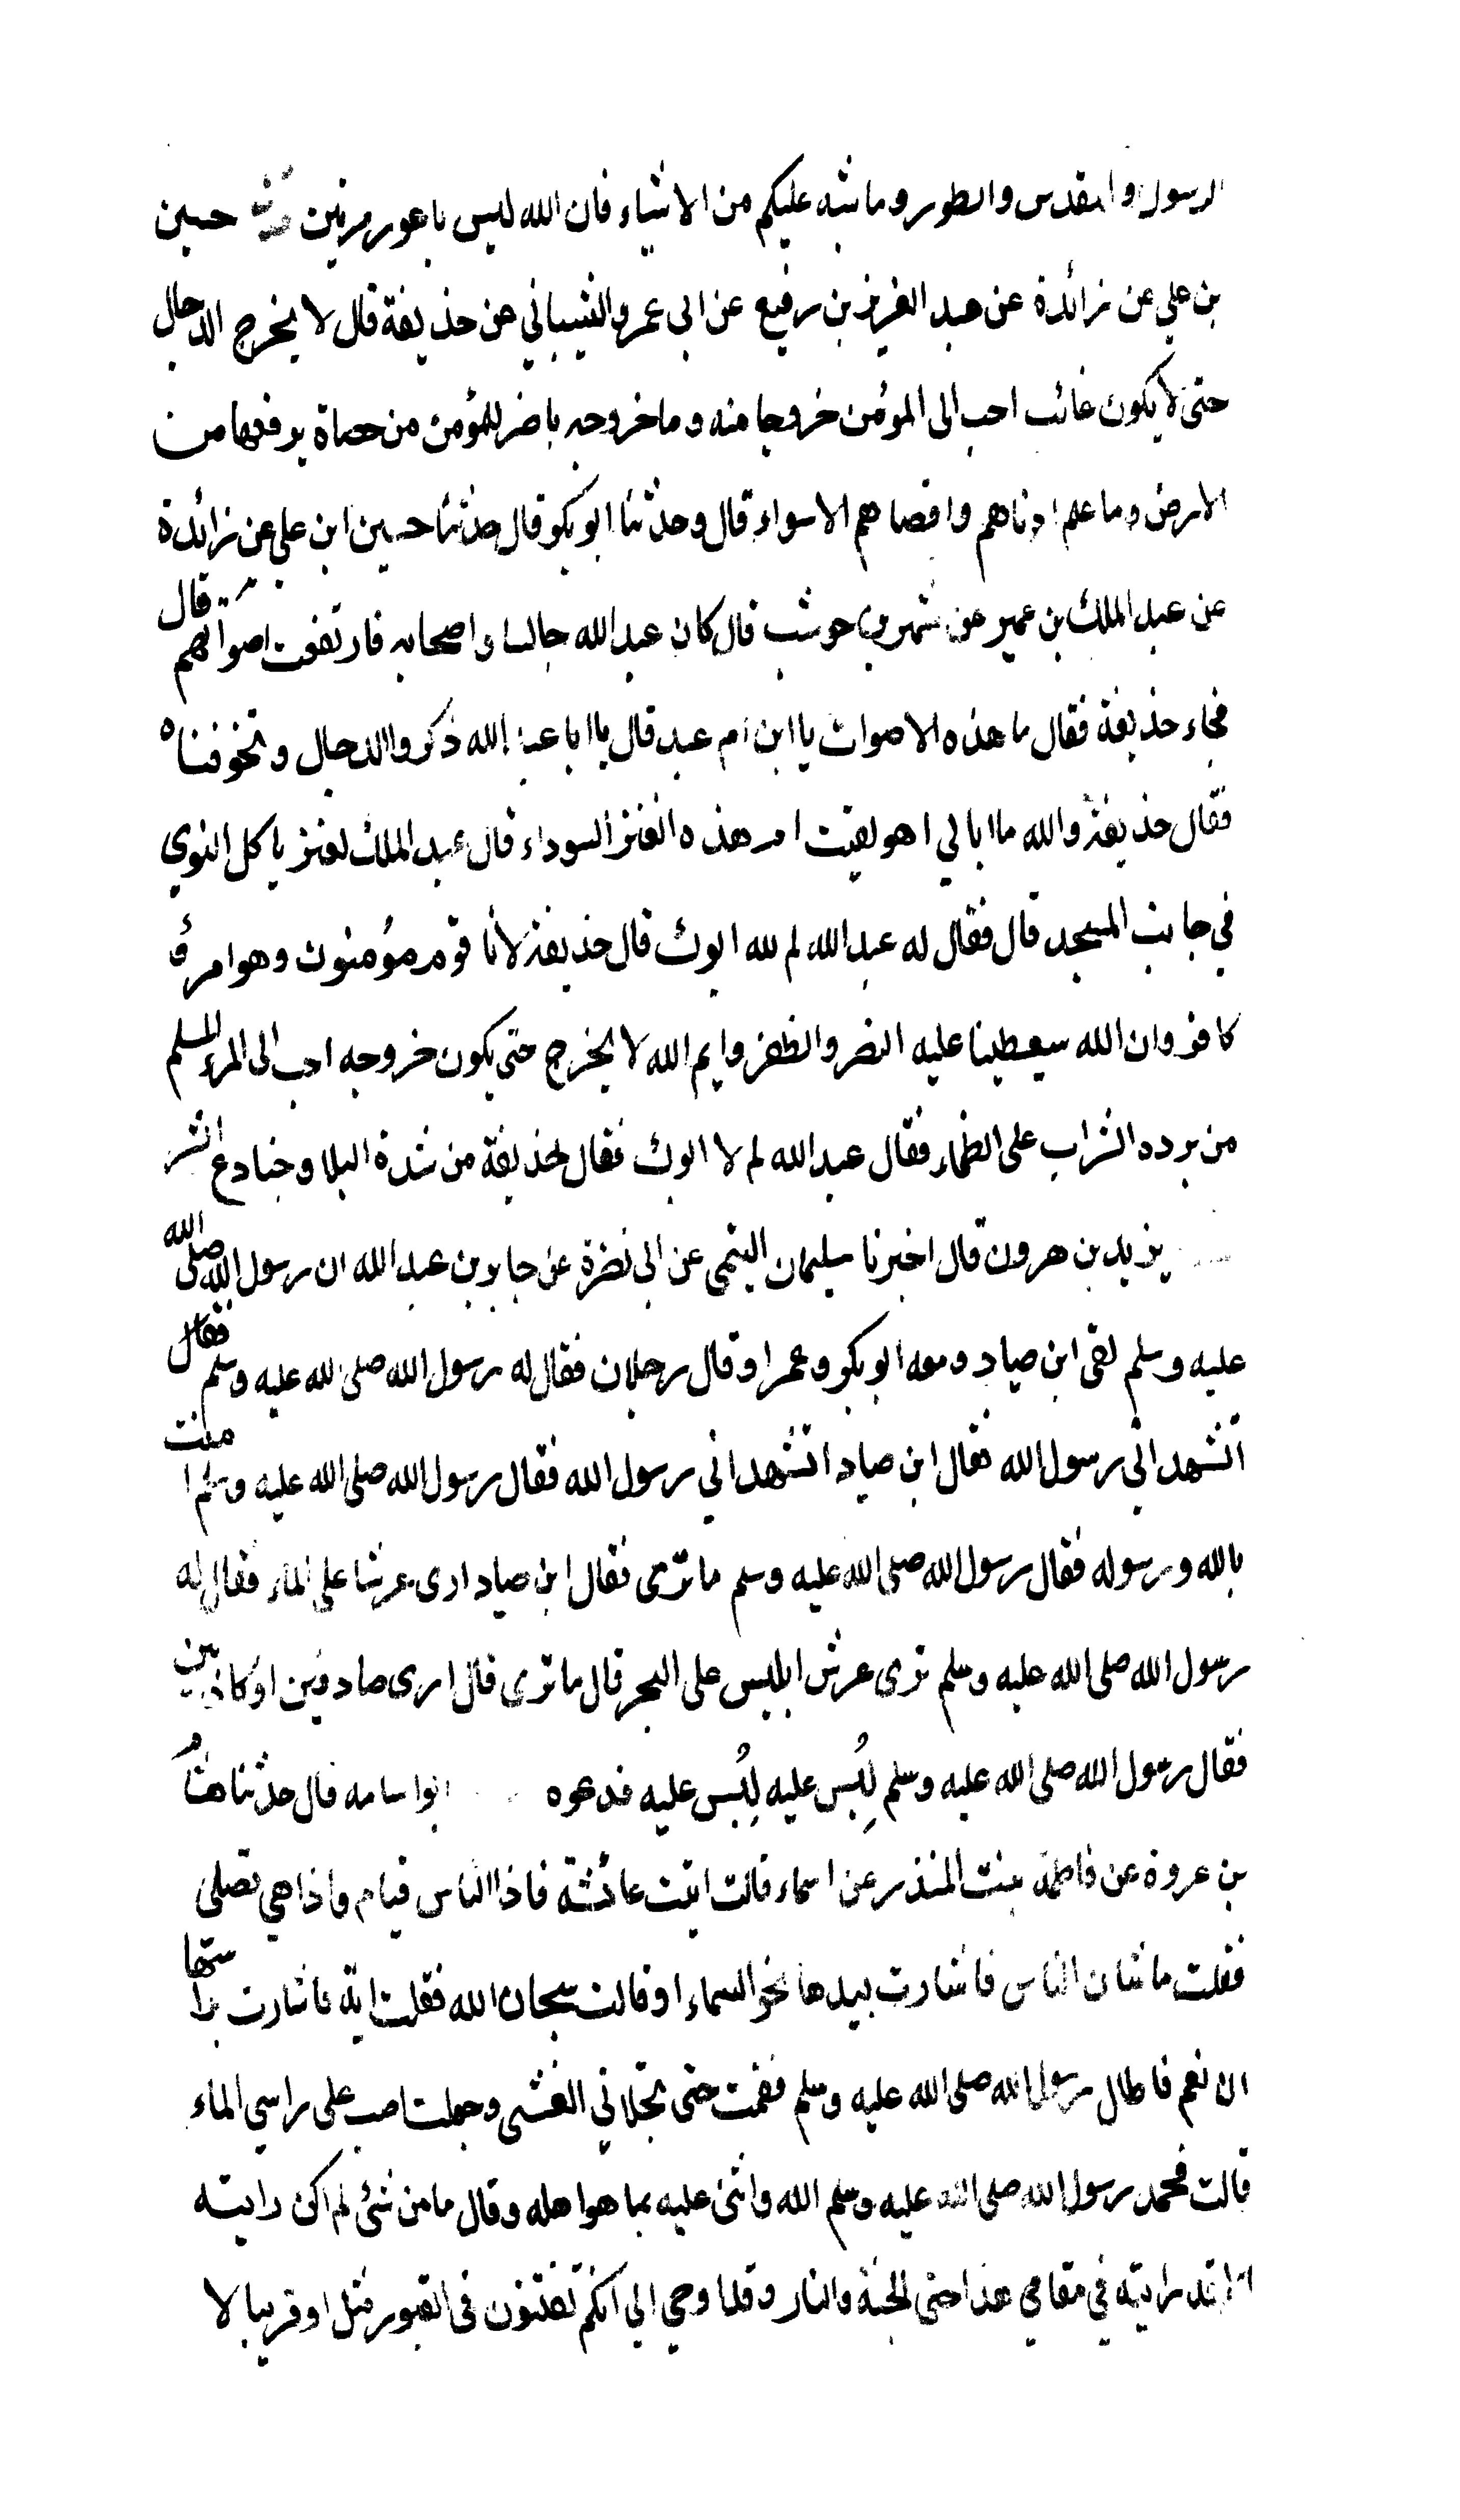 الرسول والمقدس والطور وما شبه عليكم من الاشياء فان الله ليس باعور مرتين حسين
بن علي عن زائدة عن عبد العزيز بن رفيع عن ابي عمرو الشيباني عن حذيفة قال لا يخرج الدجال
حتى لا يكون غائب احب الى المؤمن خروجا منه وما خروجه باضر للمؤمن من حصاة يرفعها من
الارض وما علم ادناهم واقصاهم الا سواء قال وحدثنا ابو بكر قال حدثنا حسين ابن علي عن زائدة
عن عبد الملك بن عمير عن شهر بن حوشب قال كان عبد الله جالسا واصحابه فارتفعت اصواتهم قال
فجاء حذيفة فقال ما هذه الاصوات يا ابن ام عبد قال يا ابا عبد الله ذكروا الدجال وتخوفناه
فقال حذيفة والله ما ابالي اهو لقيت ام هذه العنز السوداء قال عبد الملك لعنز ياكل النوى
في جانب المسجد قال فقال له عبد الله لم لله ابوك قال حذيفة لانا قوم مؤمنون وهو امرؤ
كافر وان الله سيعطينا عليه النصر والظفر وايم الله لا يخرج حتى يكون خروجه احب الى المرء المسلم
من برده الشراب على الظماء فقال عبد الله لم لا ابوك فقال لحذيفة من شدة البلا وجنادع الشر
يزيد بن هرون قال اخبرنا سليمان التيمي عن ابي نضرة عن جابر بن عبد الله ان رسول الله صلى الله
عليه وسلم لقى ابن صياد ومعه ابو بكر وعمر او قال رجلان فقال له رسول الله صلى الله عليه وسلم فقال
اتشهد اني رسول الله فقال ابن صياد اتشهد اني رسول الله فقال رسول الله صلى الله عليه وسلم امنت
بالله ورسوله فقال رسول الله صلى الله عليه وسلم ما ترى فقال ابن صياد ارى عرشا على الماء فقال له
رسول الله صلى الله عليه وسلم ترى عرش ابليس على البحر قال ما ترى قال ارى صادقين او كاذبين
فقال رسول الله صلى الله عليه وسلم لُبِس عليه لُبِس عليه فدعوه ابو اسامه قال حدثنا هشام
بن عروة عن فاطمة بنت المنذر عن اسماء قالت اتيت عائشة فاذا الناس قيام واذا هي تصلى
فقلت ما شان الناس فاشارت بيدها نحو السماء او قالت سبحان الله فقلت اية فاشارت براستها
ان نعم فاطال رسول الله صلى الله عليه وسلم فقمت حتى تجلاني الغشى وجعلت اصب على راسي الماء
قالت فحمد رسول الله صلى الله عليه وسلم الله واثنى عليه بما هو اهله وقال ما من شئ لم اكن رايته
الا قد رايته في مقامي هذا حتى الجنة والنار وقد اوحي الي انكم تفتنون في القبور مثل او قريبا لا